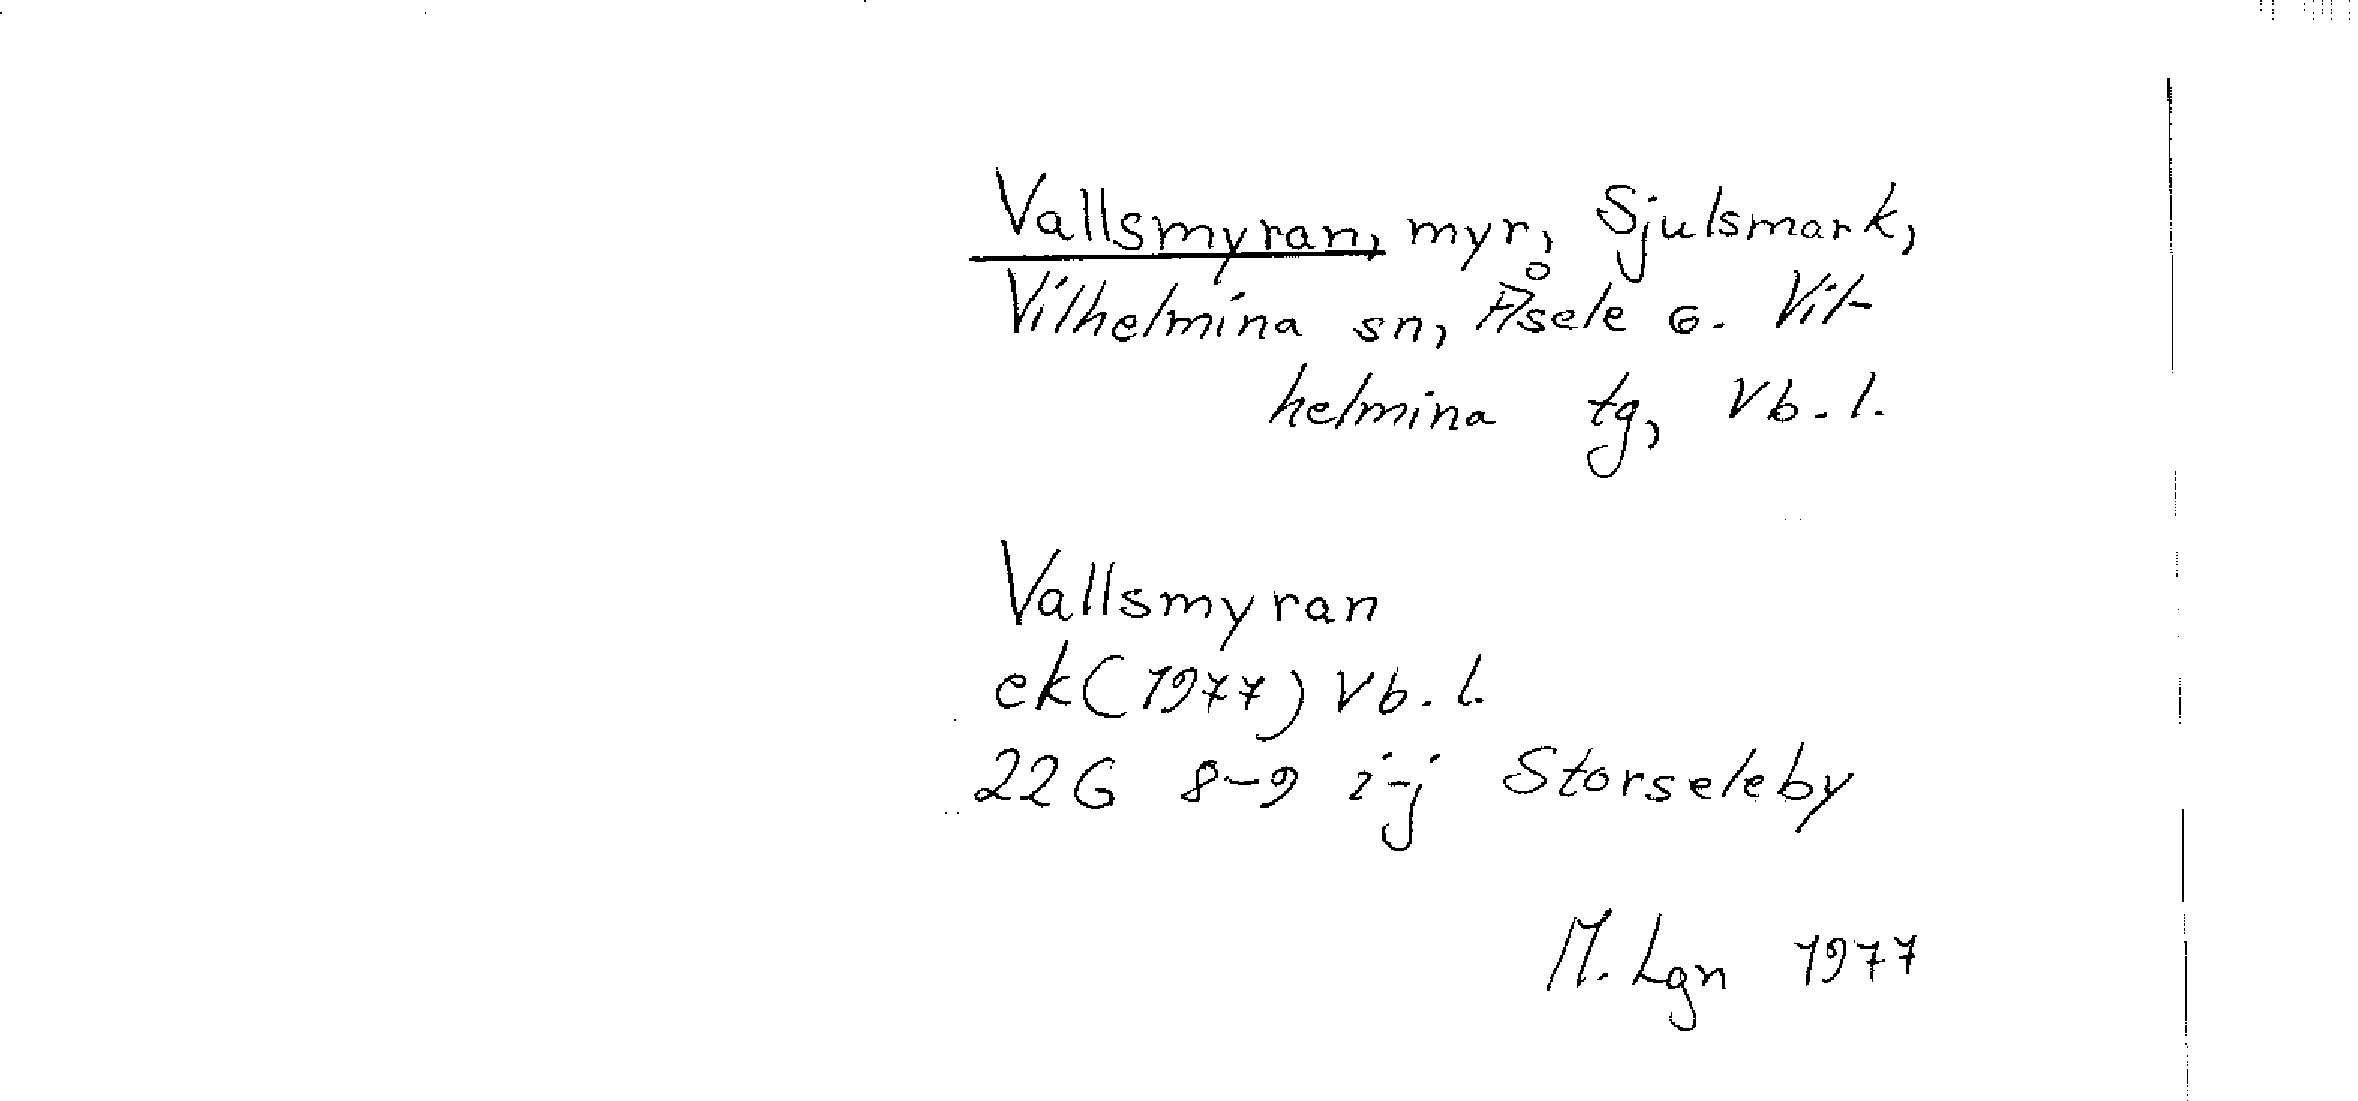 Vallsmyran, myr, Sjulsmark,
Vilhelmina sn, Åsele o. Vil-
helmina tg, Vb. l.
Vallsmyran
ek (1977) Vb. l.
22G 8-9 i-j Storseleby
M. Lgn 1977